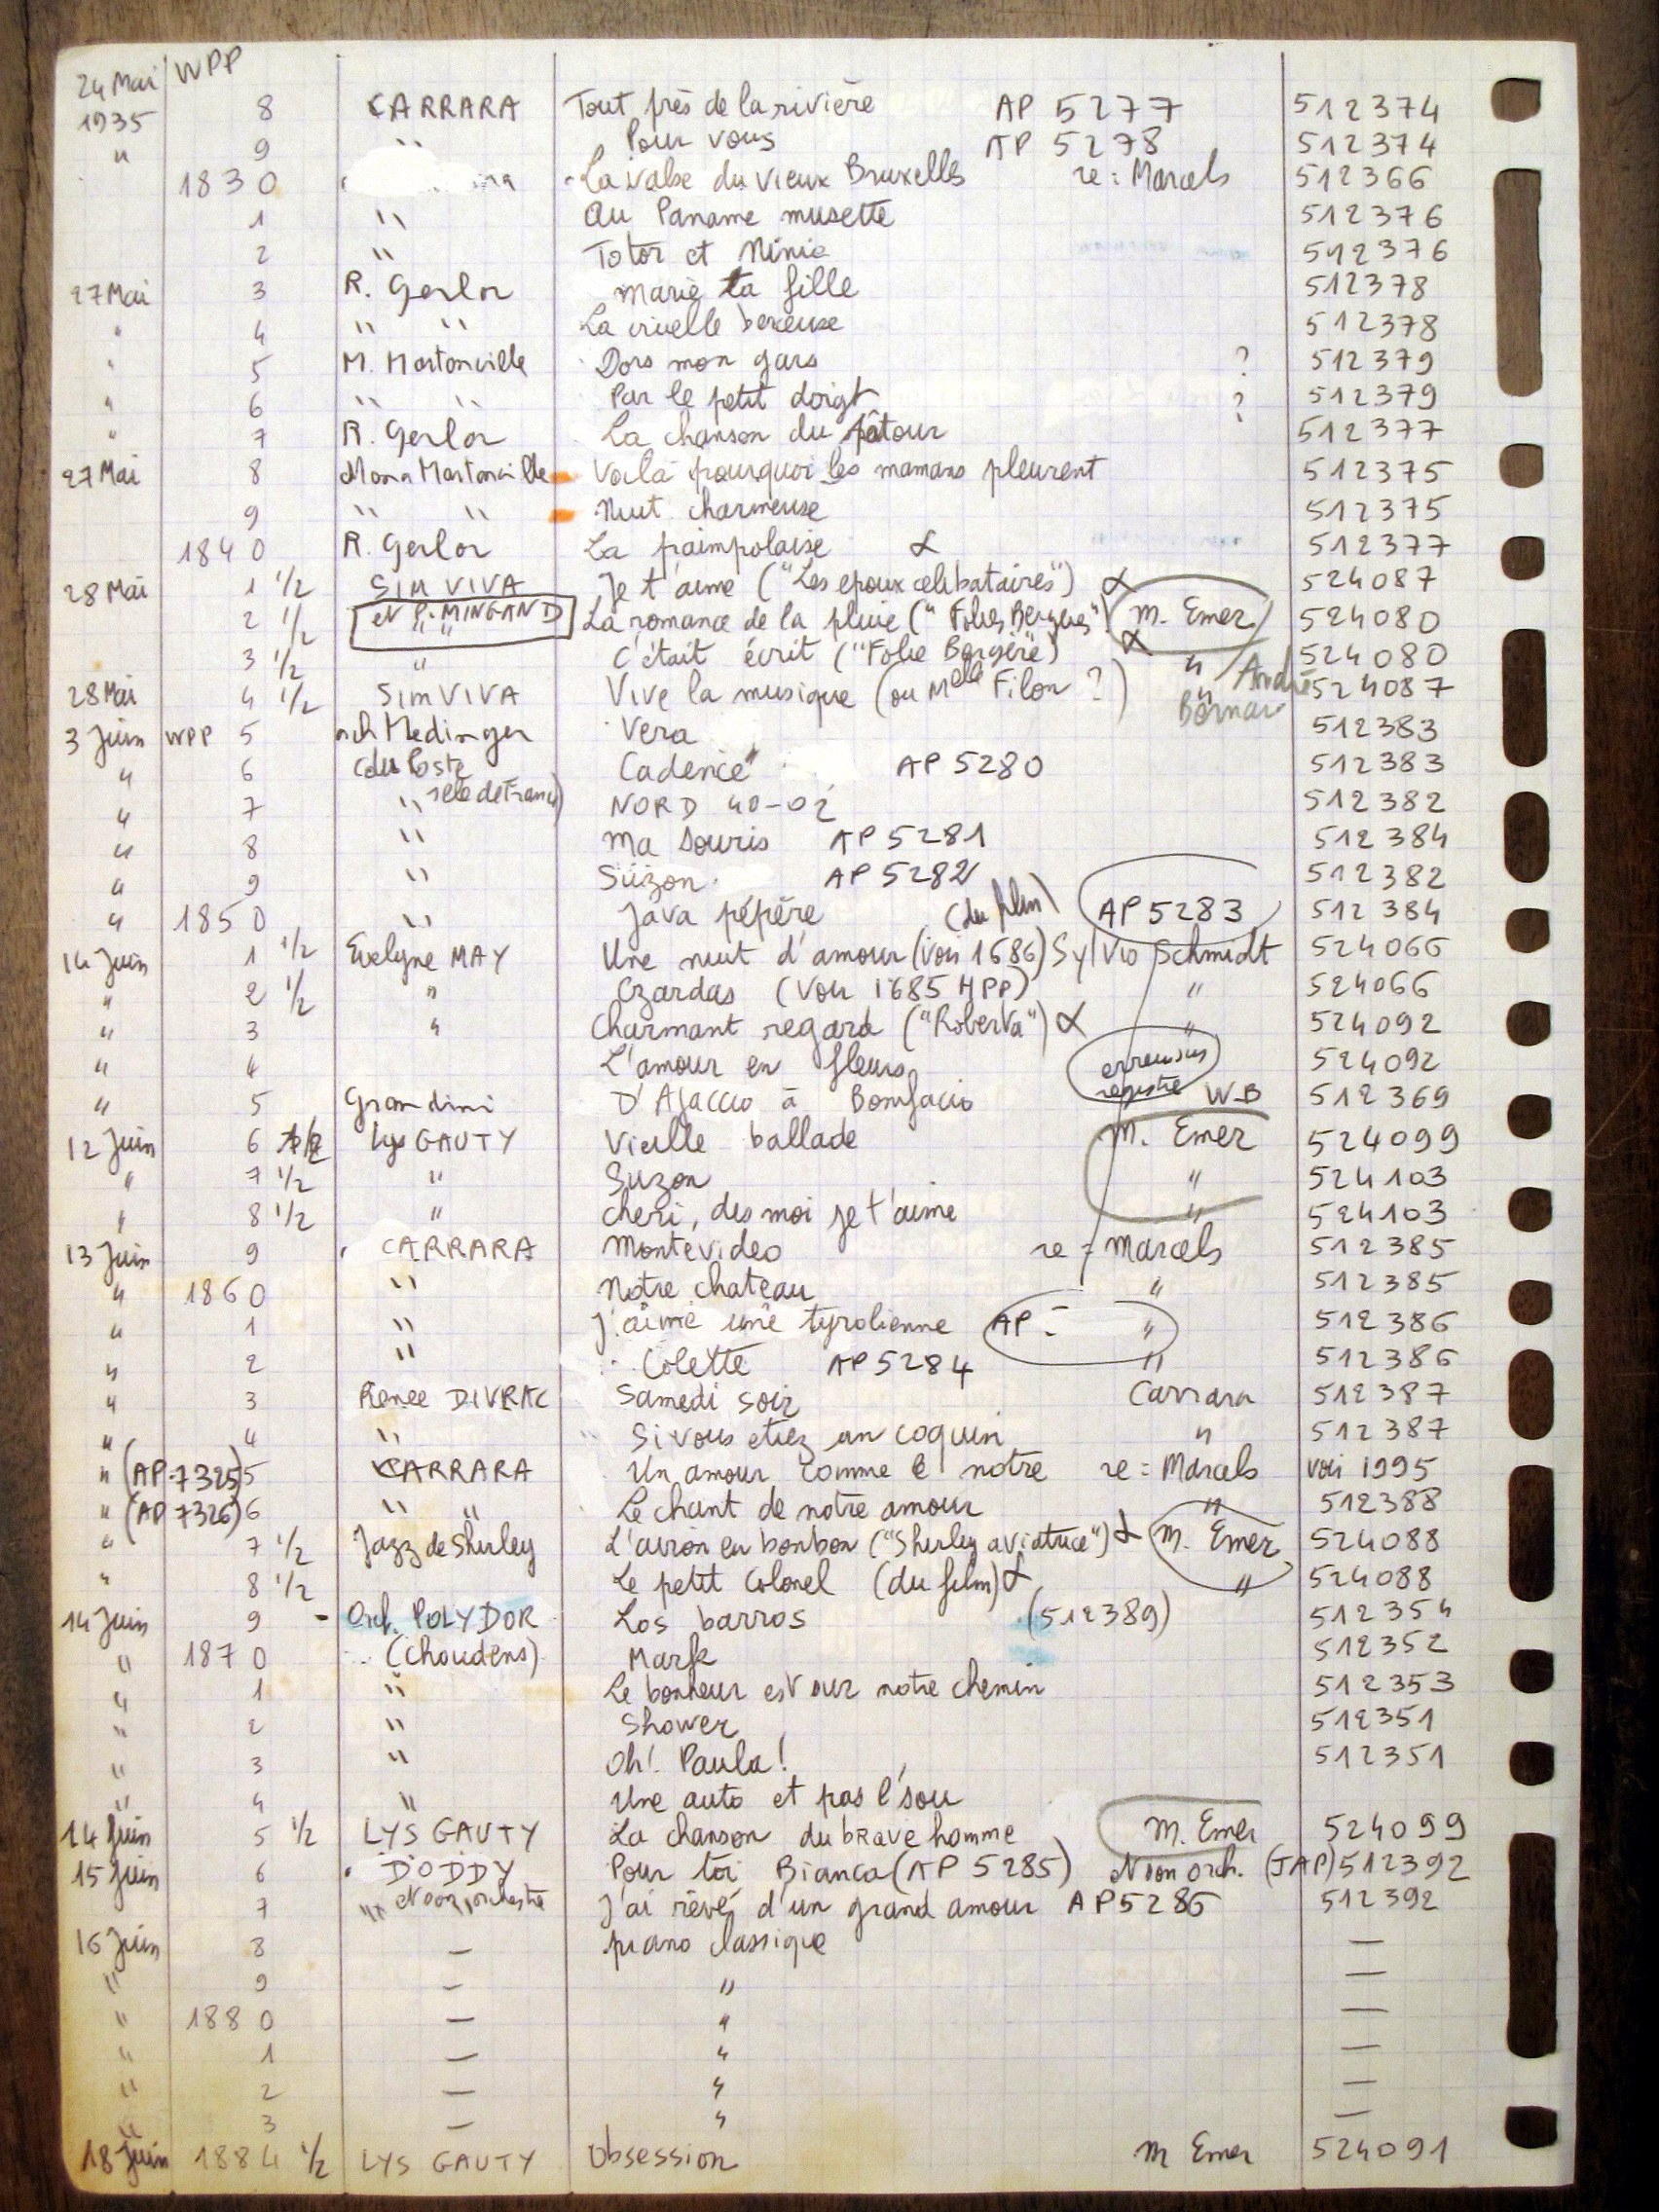 24 Mai WPP
1935 8 CARRARA Tout près de la rivière AP 5277 512374
" 9 " Pour vous AP 5278 512374
1830 La valse du vieux Bruxelles re: Marcels 512366
1 " Au Paname musette 512376
2 " Totor et Ninie 512376
27 Mai 3 R. Gerlor Marie ta fille 512378
" 4 " " La cruelle berceuse 512378
" 5 M. Martonville Dors mon gars ? 512379
" 6 " " Par le petit doigt ? 512379
" 7 R. Gerlor La chanson du pâtour 512377
27 Mai 8 Mona Martonville Voilà pourquoi les mamans pleurent 512375
9 " " Nuit charmeuse 512375
1840 R. Gerlor La paimpolaise α 512377
28 Mai 1 1/2 SIM VIVA Je t'aime ("Les epoux celibataires") α 524087
2 1/2 et P. MINGAND " " La romance de la pluie ("Folies Bergères") M. Emer 524080
3 1/2 " C'était écrit ("Folie Bergère") α " 524080
28 Mai 4 1/2 SIM VIVA Vive la musique (ou Melle Filon ?) " André 524087
3 Juin WPP 5 orch Medinger Vera 512383
" 6 (du Poste Cadence AP 5280 512383
" 7 " NORD 40-02 512382
" 8 " Ma souris AP 5281 512384
" 9 " Suzon AP 5282 512382
" 1850 " Java pépère (du film) AP 5283 512384
14 Juin 1 1/2 Evelyne MAY Une nuit d'amour (voir 1686) Sylvio Schmidt 524066
" 2 1/2 " Czardas (voir 1685 HPP) " 524066
" 3 " Charmant regard ("Roberta") α " 524092
" 4 L'amour en fleurs 524092
erreur sur
registre
" 5 Grandini D'Ajaccio à Bonifacio W-B 512369
12 Juin 6 1/2 Lys GAUTY Vieille ballade M. Emer 524099
" 7 1/2 " Suzon " 524103
" 8 1/2 " cheri, des moi je t'aime " 524103
13 Juin 9 CARRARA Montevideo re = Marcels 512385
" 1860 " Notre chateau " 512385
" 1 " J'aime une tyrolienne AP - " 512386
" 2 " Colette AP 5284 " 512386
" 3 Renee DIVRAC Samedi soir Carrara 512387
" 4 " Si vous etiez un coquin " 512387
" (AP-7325) 5 CARRARA Un amour comme le notre re = Marcels voir 1995
" (AP 7326) 6 " " Le chant de notre amour " 512388
" 7 1/2 Jazz de Shirley L'avion en bonbon ("Shirley aviatrice") α M. Emer 524088
" 8 1/2 Le petit colonel (du film) α " 524088
14 Juin 9 - Orch. POLYDOR Los barros (512389) 512354
" 1870 (Choudens) 512352
" 1 " Le bonheur est sur notre chemin 512353
" 2 " Shower 512351
" 3 " Oh! Paula! 512351
" 4 " Une auto et pas l'sou
14 Juin 5 1/2 LYS GAUTY La chanson du brave homme M. Emer 524099
15 Juin 6 DODDY Pour toi Bianca (AP 5285) et son orch. (JAP) 512392
7 " et son orchestre J'ai rêvé d'un grand amour AP 5286 512392
16 Juin 8 — piano classique —
" 9 — " —
" 1880 — " —
" 1 — " —
" 2 — " —
" 3 — " —
18 Juin 1884 1/2 LYS GAUTY Obsession M Emer 524091